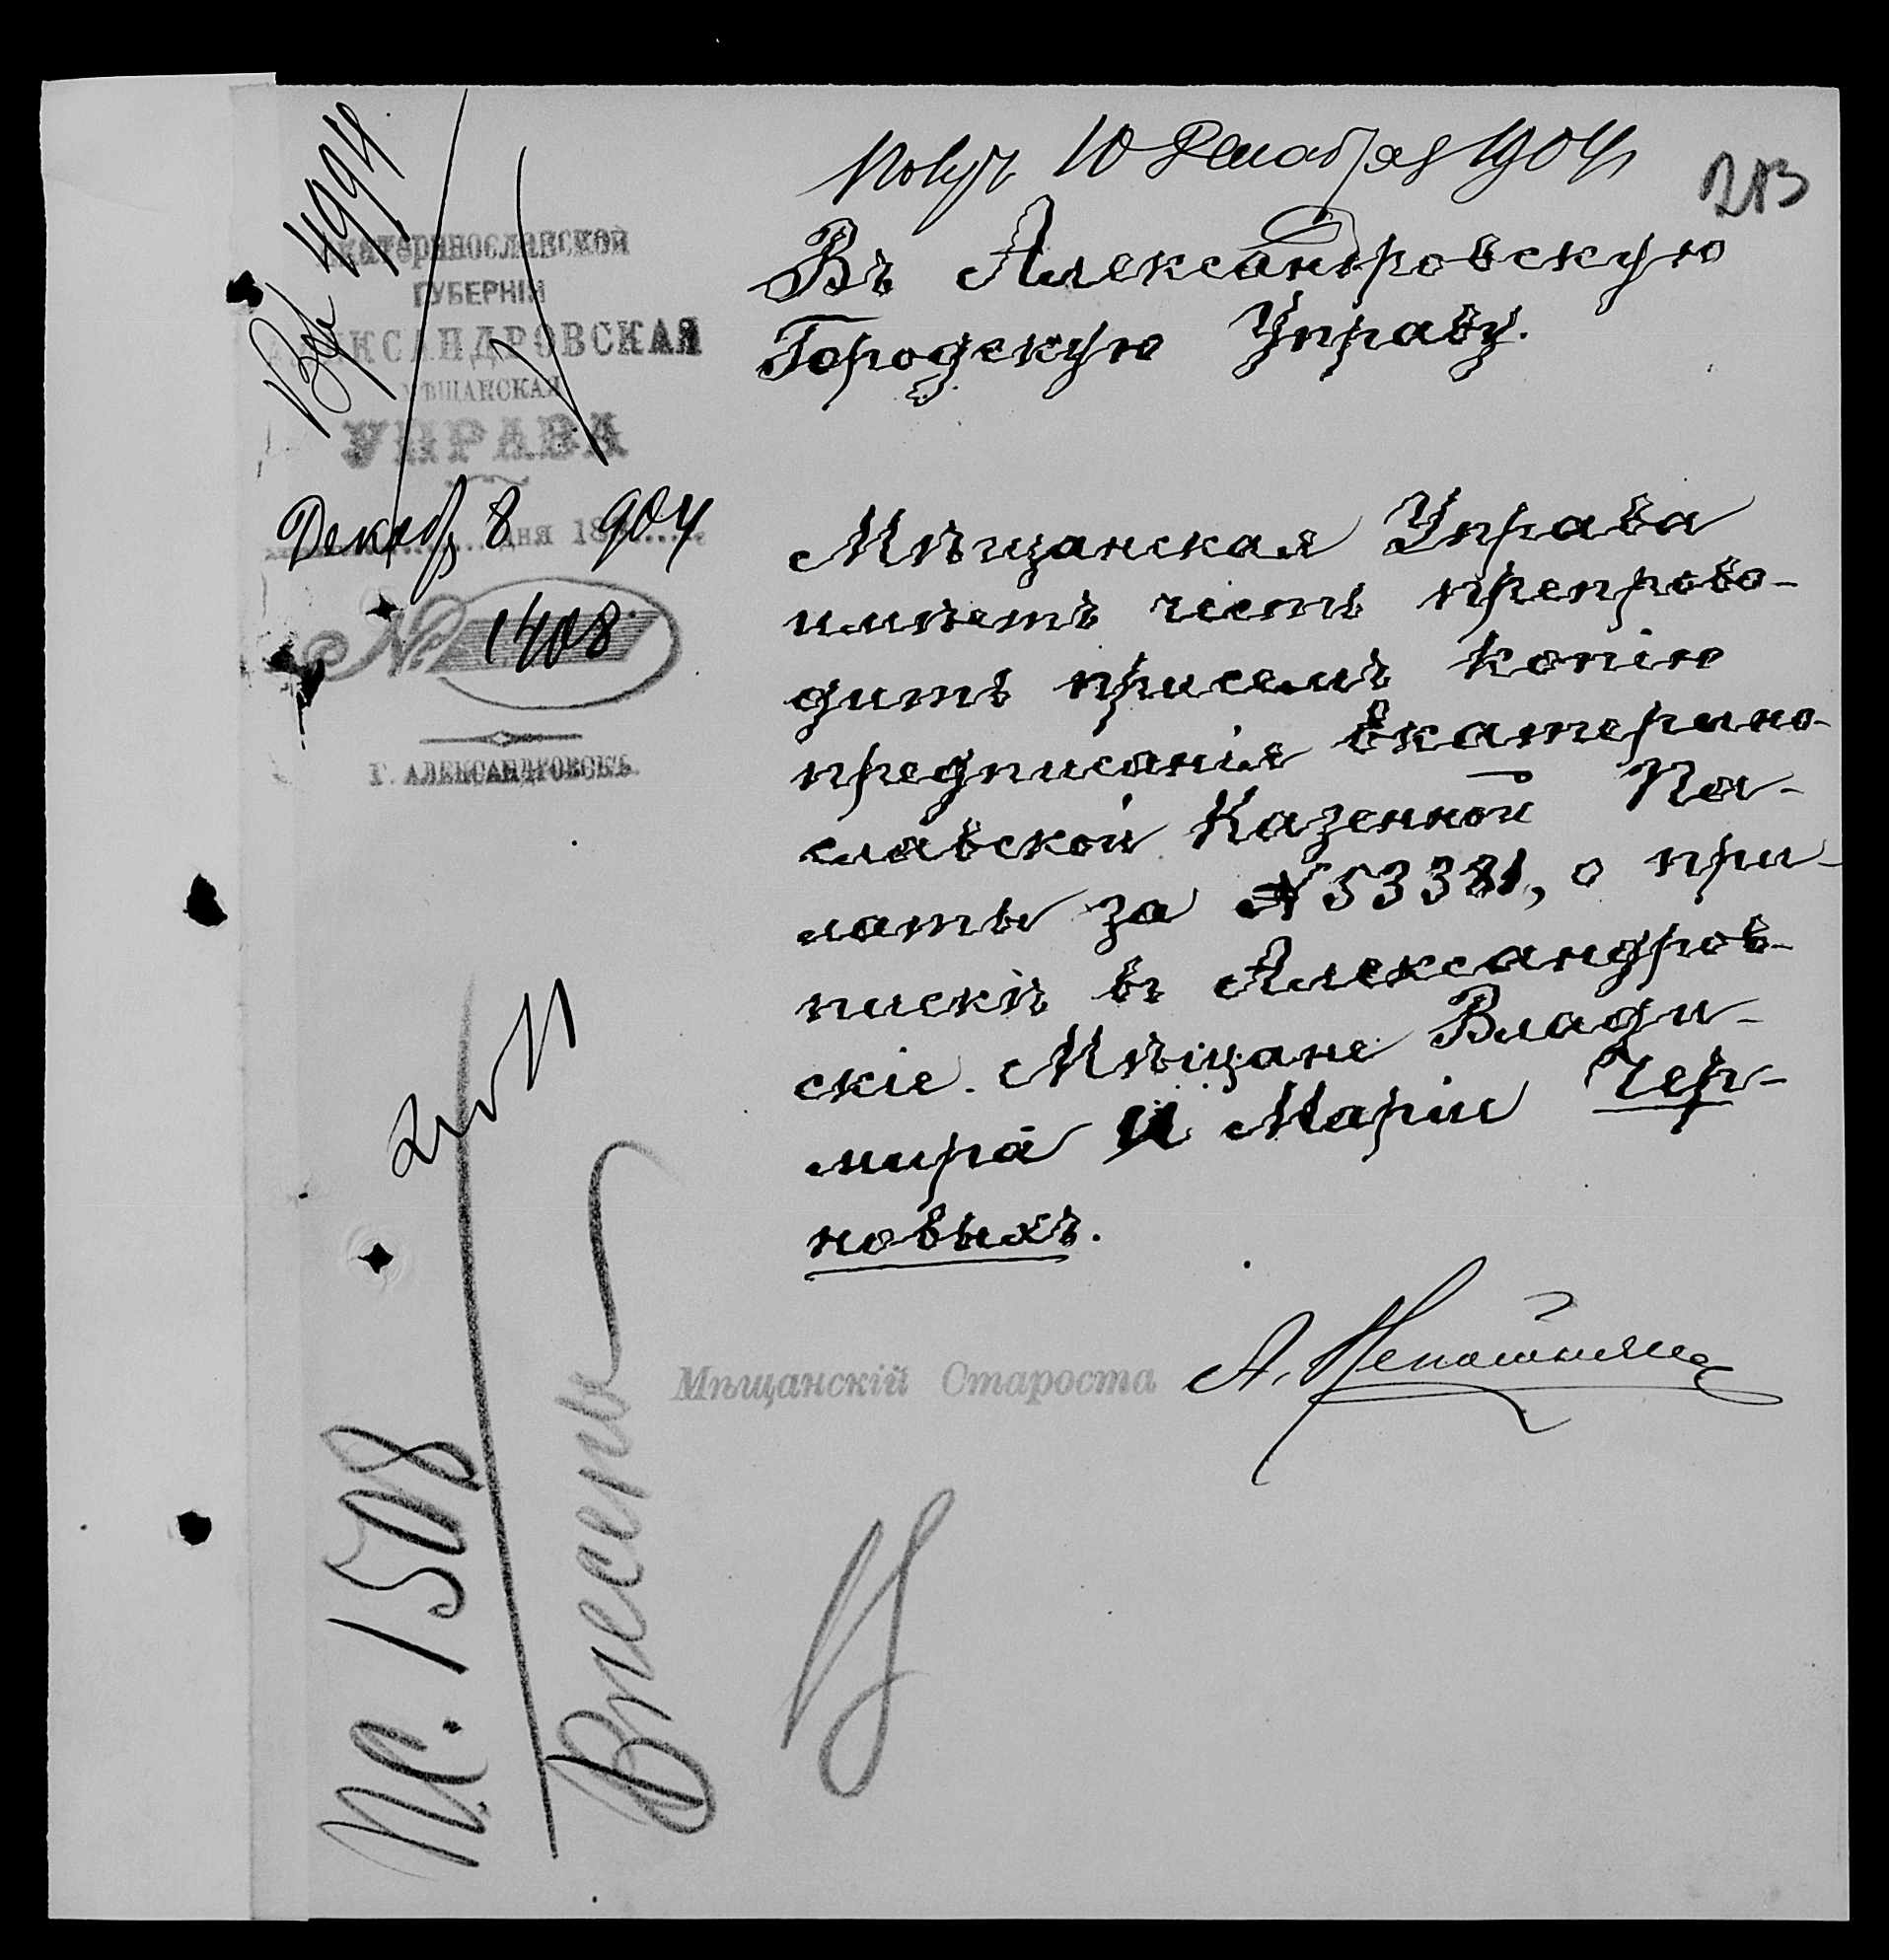 Получ 10 Декабря 1904 г.
213
Вх 4994
Екатеринославской
ГУБЕРНІИ
АЛЕКСАНДРОВСКАЯ
МѢЩАНСКАЯ
УПРАВА
Декаб 8 дня 1904
№ 1408
Г. АЛЕКСАНДРОВСКЪ.
Въ Александровскую
Городскую Управу.
Мѣщанская Управа
имѣетъ честь препрово-
дить присемъ копію
предписанія Екатерино-
славской Казенной Па-
латы за № 53381, о при-
пискѣ въ Александров-
скіе Мѣщане Влади-
мира и Маріи Чер-
новыхъ.
Мѣщанскій Староста А.
М.С. 1508
Внесены